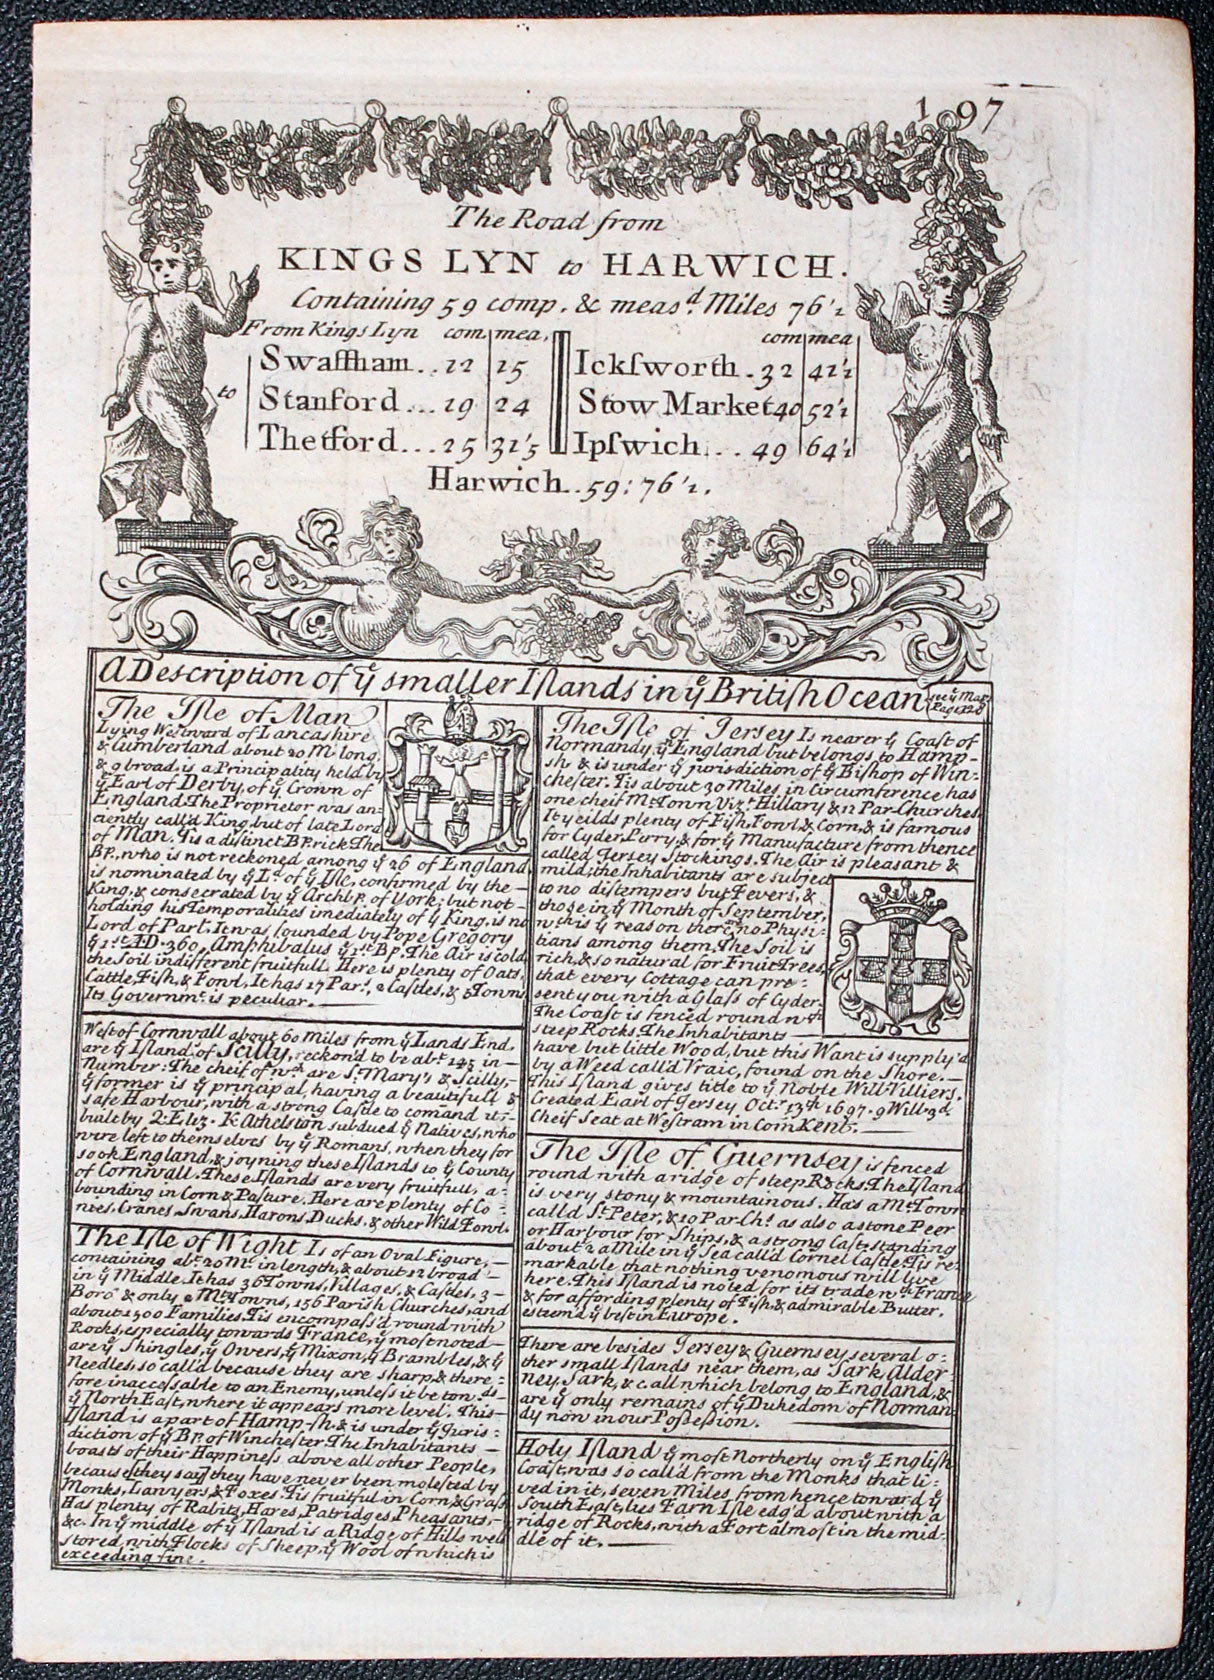 197
The Road from
KINGS LYN to HARWICH.
Containing 59 comp. & measd. Miles 76'2
From Kings Lyn com. mea.
to
Swaffham..12 15
Stanford...19 24
Thetford...25 31'5
com mea
Ickſworth.32 41'2
Stow Market 40 52'2
Ipſwich...49 64'2
Harwich..59:76'2.
A Description of ye smaller Iſlands in ye Britiſh Ocean (see ye Map Page 128)
The Iſle of Man
Lying Westward of Lancashire
& Cumberland about 30 M. long,
& 9 broad, is a Principality held by
ye Earl of Derby, of ye Crown of
England. The Proprietor was an-
ciently call'd King, but of late Lord
of Man. Tis a distinct BP.rick The
BP. who is not reckoned among ye 26 of England
is nominated by ye Ld. of ye Iſle, confirmed by the
King, & consecrated by ye Archbp. of York; but not-
holding his Temporalities imediately of ye King, is no
Lord of Parl. It was founded by Pope Gregory
ye 1st. AD. 360, Amphibalus ye 1st BP. The Air is cold,
the Soil indifferent fruitfull. Here is plenty of Oats,
Cattle, Fish, & Fowl, It has 17 Par., 2 Caſtles, & 5 Towns
Its Governmt. is peculiar.
West of Cornwall about 60 Miles from ye Lands End,
are ye Iſlands of Scilly, reckon'd to be abt. 145 in
Number: The cheif of wch. are St. Mary's & Scilly,
ye former is ye principal, having a beautifull &
safe Harbour, with a strong Castle to comand it:
built by Q: Eliz. K. Athelston subdued ye Natives, who
were left to themselves by ye Romans, when they for
sook England, & joyning these Iſlands to ye County
of Cornwall. These Iſlands are very fruitfull, a-
bounding in Corn & Pasture. Here are plenty of Co-
nies, Cranes, Swans, Harons, Ducks, & other Wild Fowl.
The Iſle of Wight Is of an Oval Figure,
containing abt. 20 M. in length, & about 12 broad
in ye Middle. It has 36 Towns, Villages, & Castles, 3
Boros & only 2 Mt. Towns, 156 Parish Churches, and
about 1500 Families, Tis encompass'd round with
Rocks, especially towards France, ye most noted
are ye Shingles, ye Owers, ye Mixon, ye Brambles, & ye
Needles, so call'd because they are sharp, & there-
fore inaccessable to an Enemy, unless it be towds.
ye North East, where it appears more level. This
Iſland is a part of Hamp-sh. & is under ye Juris-
diction of ye BP. of Winchester The Inhabitants
boasts of their Happineſs above all other People,
because [they say] they have never been molested by
Monks, Lawyers, & Foxes. Tis fruitful in Corn, & Graſs
Has plenty of Rabits, Hares, Patridges, Pheasants,
&c. In ye middle of ye Iſland is a Ridge of Hills well
stored with Flocks of Sheep, ye Wool of which is
exceeding fine.
The Iſle of Jersey Is nearer ye Coast of
Normandy, yn. England but belongs to Hamp-
sh. & is under ye jurisdiction of ye Bishop of Win-
chester. Tis about 30 Miles in Circumference has
one cheif Mt. Town Vizt. Hillary & 12 Par. Churches.
It yeilds plenty of Fish, Fowl, & Corn, & is famous
for Cyder, Perry, & for ye Manufacture from thence
called Jersey Stockings. The Air is pleasant &
mild; the Inhabitants are subject
to no distempers but Fevers, &
those in ye Month of September,
wch. is ye reason there are no Physi-
tians among them. The Soil is
rich, & so natural for Fruit Trees,
that every Cottage can pre-
sent you with a Glaſs of Cyder.
The Coast is fenced round wth.
steep Rocks. The Inhabitants
have but little Wood, but this Want is supply'd
by a Weed call'd Vraic, found on the Shore.
This Iſland gives title to ye Noble Will Villiers,
Created Earl of Jersey Octr. 13th 1697. 9 Will 3d.
Cheif Seat at Westram in Com Kent.
The Iſle of Guernsey is fenced
round with a ridge of steep Rocks. The Island
is very stony & mountainous. Has a Mt. Town
call'd St. Peter, & 10 Par. Chs. as also a stone Peer
or Harbour for Ships, & a strong Cast. standing
about 2 a Mile in ye Sea call'd Cornel Castle. Tis re-
markable that nothing venomous will live
here. This Iſland is noted for its trade wth. France
& for affording plenty of Fish, & admirable Butter,
esteem'd ye best in Europe.
There are besides Jersey & Guernsey several o-
ther small Iſlands near them, as Sark, Alder-
ney, Jark, &c. all which belong to England, &
are ye only remains of ye Dukedom of Norman-
dy now in our Poſseſsion.
Holy Iſland ye most Northerly on ye Engliſh
Coast, was so call'd from the Monks that li-
ved in it, seven Miles from hence toward ye
South East, lies Farn Iſle edg'd about with a
ridge of Rocks, with a Fort almost in the mid-
dle of it.